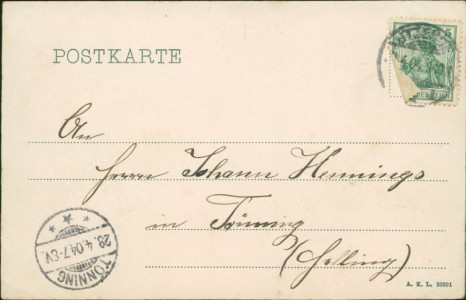 POSTKARTE
An
Herrn Johann Hennings
in Tönning
TÖNNING
28.4.04 7-8V.
A. K. L. 20501